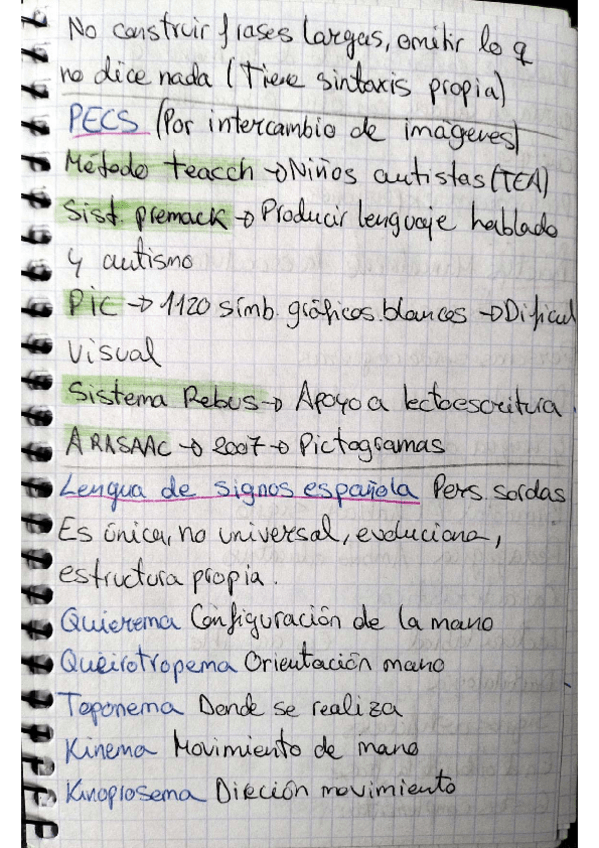 No construir frases largas, omitir lo q
no dice nada (Tiene sintaxis propia)
PECS (Por intercambio de imágenes)
Método teacch → Niños autistas (TEA)
Sist. premack → Producir lenguaje hablado
y autismo
PiC → 1120 símb. gráficos. blancos → Dificul
visual
Sistema Rebus → Apoyo a lectoescritura.
ARASAAC → 2007 → Pictogramas
Lengua de signos española Pers. sordas
Es única, no universal, evoluciona,
estructura propia.
Quierema Configuración de la mano
Queirotropema Orientación mano
Toponema Donde se realiza
Kinema Movimiento de mano
Kinoprosema Direción movimiento